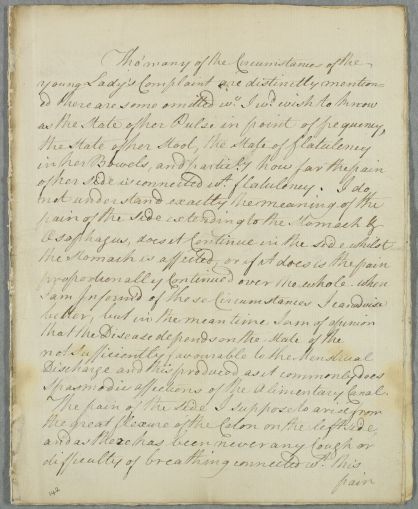 Tho' many of the Circumstances of the
young Lady's Complaint are distinctly mention-
ed there are some omitted wc. I wd. wish to know
as the State of her Pulse in point of frequency,
the State of her Stool, the State of flatulency
in her Bowels, and particly. how far the pain
of her Side is connected wt. flatulency. I do
not understand exactly the meaning of the
pain of the Side extending to the Stomach &
Œsophagus, does it Continue in the side whilst
the Stomach is affected, or if it does is the pain
proportionally Continued over the whole. when
I am Informed of these Circumstances I can advise
better, but in the mean time I am of opinion
that the Disease depends on the State of the
not Sufficiently favourable to the Menstrual
Discharge and this produced as it commonly does
Spasmodic affections of the Alimentary Canal.
The pain of the Side I suppose to arise from
the great flexure of the Colon on the left side
and as there has been never any Cough or
difficulty of breathing connected wt. this
pain
142